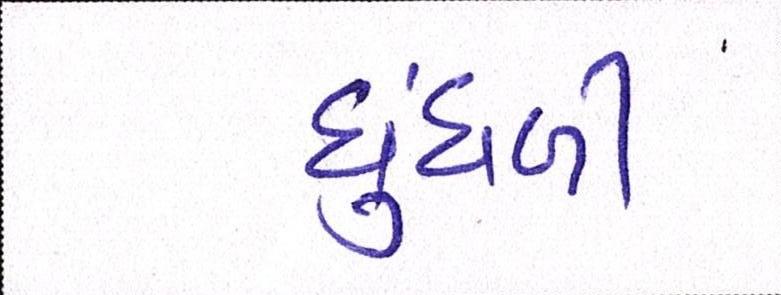 ધુંધળી